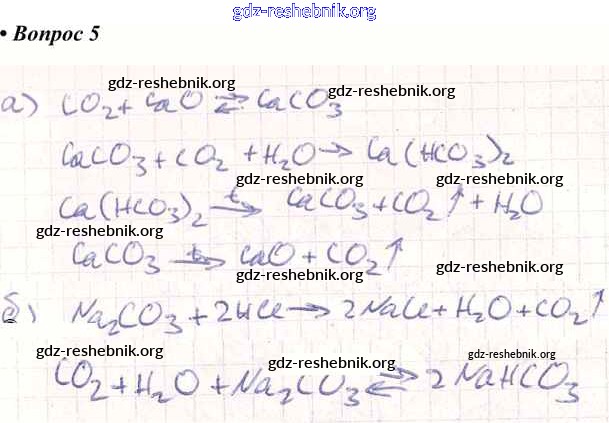 gdz-reshebnik.org
• Вопрос 5
gdz-reshebnik.org
а) CO₂ + CaO ⇌ CaCO₃ gdz-reshebnik.org
CaCO₃ + CO₂ + H₂O → Ca(HCO₃)₂
gdz-reshebnik.org gdz-reshebnik.org
Ca(HCO₃)₂ →t CaCO₃ + CO₂↑ + H₂O
gdz-reshebnik.org
CaCO₃ →t CaO + CO₂↑
gdz-reshebnik.org gdz-reshebnik.org
б) Na₂CO₃ + 2HCl → 2NaCl + H₂O + CO₂↑
gdz-reshebnik.org gdz-reshebnik.org gdz-reshebnik.org
CO₂ + H₂O + Na₂CO₃ ⇌ 2NaHCO₃